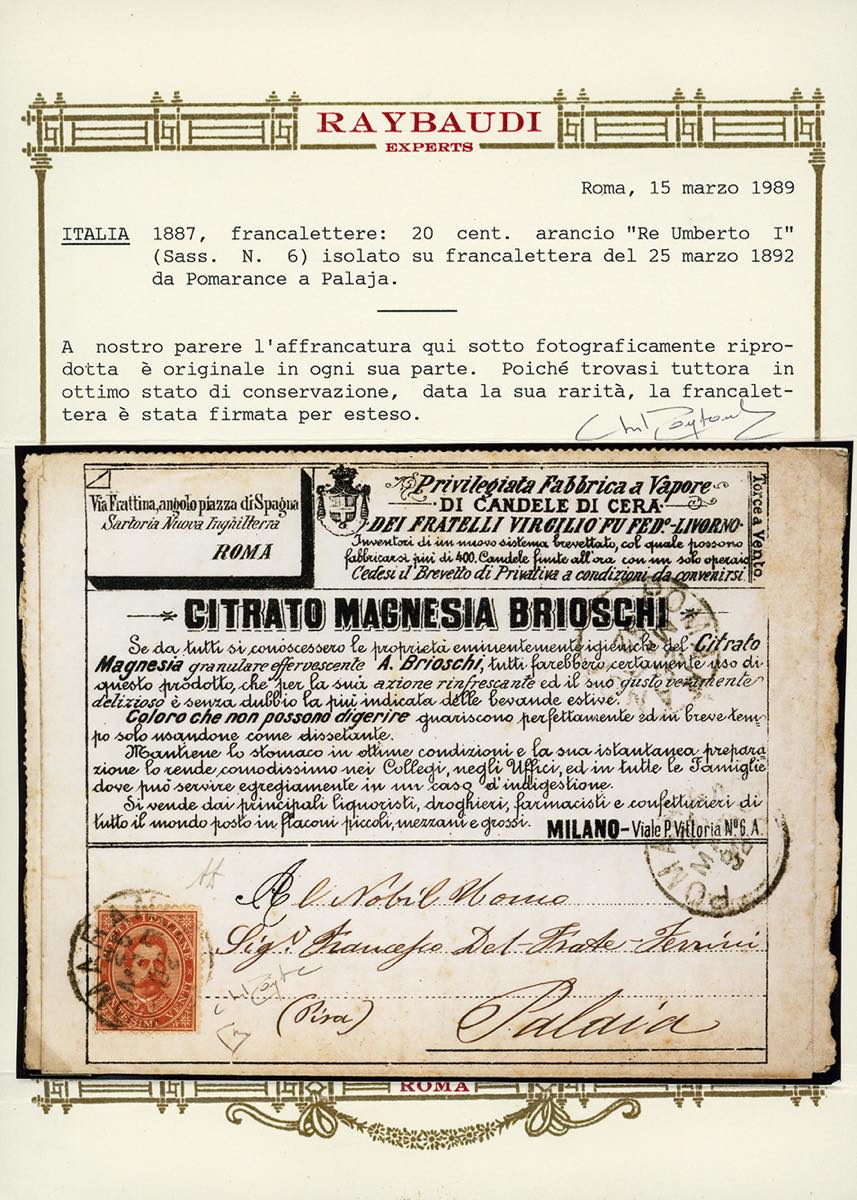 RAYBAUDI
EXPERTS
Roma, 15 marzo 1989
ITALIA 1887, francalettere: 20 cent. arancio "Re Umberto I"
(Sass. N. 6) isolato su francalettera del 25 marzo 1892
da Pomarance a Palaja.
A nostro parere l'affrancatura qui sotto fotograficamente ripro-
dotta è originale in ogni sua parte. Poiché trovasi tuttora in
ottimo stato di conservazione, data la sua rarità, la francalet-
tera è stata firmata per esteso.
Via Frattina, angolo piazza di Spagna
Sartoria Nuova Inghilterra
ROMA
Privilegiata Fabbrica a Vapore
DI CANDELE DI CERA
DEI FRATELLI VIRGILIO FU FEDº-LIVORNO-
Inventori di un nuovo sistema brevettato, col quale possono
fabbricarsi piui di 400. Candele finite all'ora con un solo operaio
Cedesi il Brevetto di Privativa a condizioni da convenirsi.
Torce a Vento
CITRATO MAGNESIA BRIOSCHI
Se da tutti si conoscessero le proprietà eminentemente igieniche del Citrato
Magnesia granulare effervescente A. Brioschi, tutti farebbero certamente uso di
questo prodotto, che per la sua azione rinfrescante ed il suo gusto veramente
delizioso è senza dubbio la piui indicata delle bevande estive.
Coloro che non possono digerire guariscono perfettamente ed in breve tem-
po solo usandone come dissetante.
Mantiene lo stomaco in ottime condizioni e la sua istantanea prepara
zione lo rende comodissimo nei Collegi, negli Uffici, ed in tutte le Famiglie
dove può servire egregiamente in un caso d'indigestione.
Si vende dai principali liquoristi, droghieri, farmacisti e confetturieri di
tutto il mondo posto in flaconi piccoli, mezzani e grossi. MILANO-Viale P. Vittoria Nº 6. A.
Al Nobil Uomo
Sigr Francesco Del-Frate-Fernini
(Pisa) Palaia
ROMA